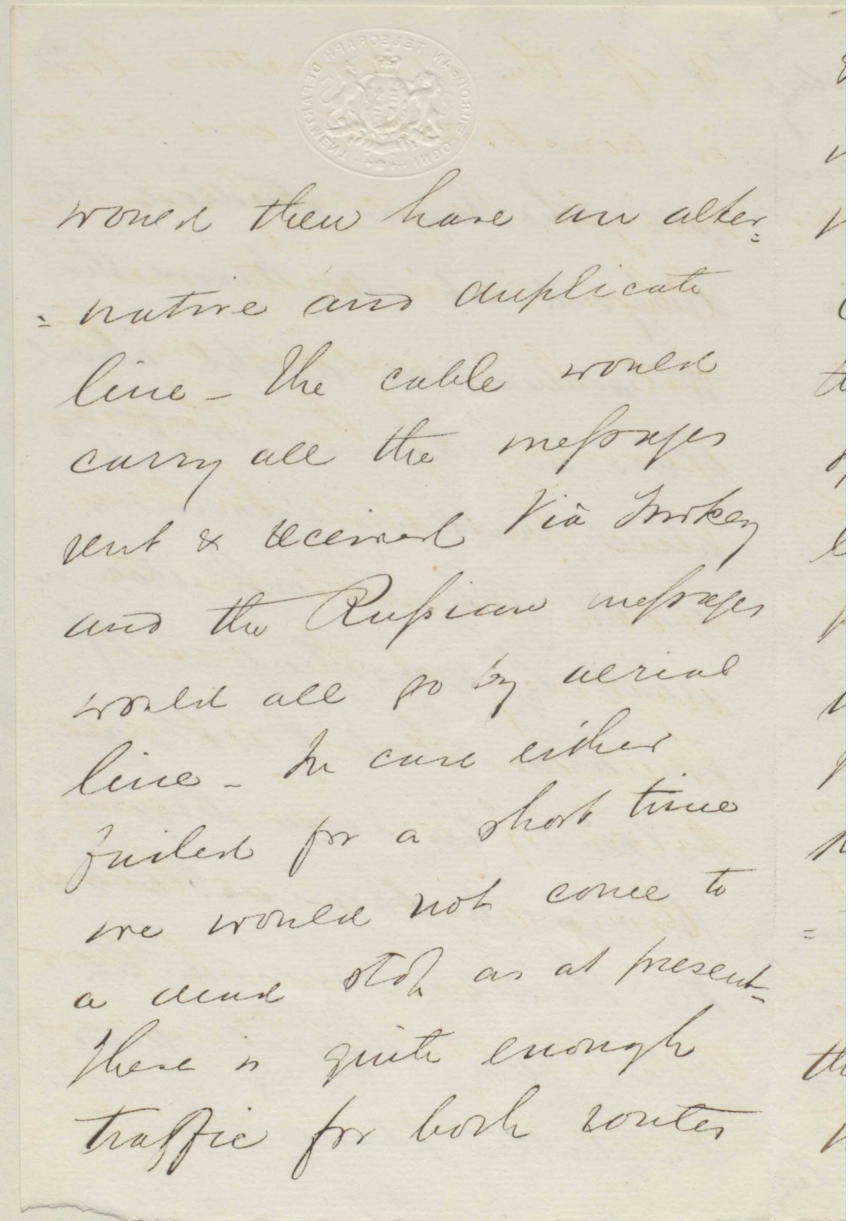 would then have an alter=
=native and duplicate
line - The cable would
carry all the messages
sent & received Via Turkey
and the Russian messages
would all go by aerial
line - In case either
failed for a short time
we would not come to
a dead stop as at present -
There is quite enough
traffic for both routes